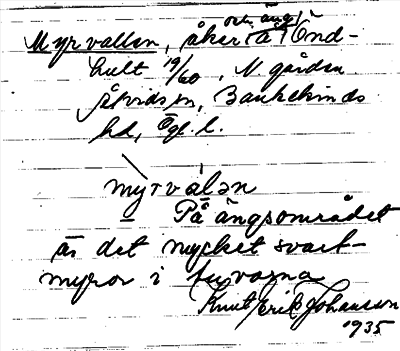 Myrvallen, åker och äng i Önd-
hult 19/60, N. gården
Åtvids sn, Bankekinds
hd, Ögl. l.
myrvalən
På ängsområdet
är det mycket svart-
myror i tuvorna
Knut Erik Johansson
1935